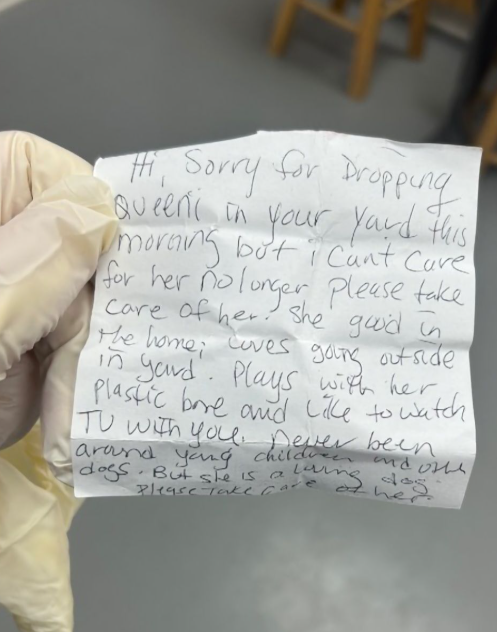 Hi, Sorry for Dropping
Queeni in your yard this
morning but i cant care
for her no longer please take
care of her. She good in
the home, loves going outside
in yard. Plays with her
plastic bone and like to watch
TV with you. Never been
around young children and other
dogs. But she is a loving dog.
Please Take care of her